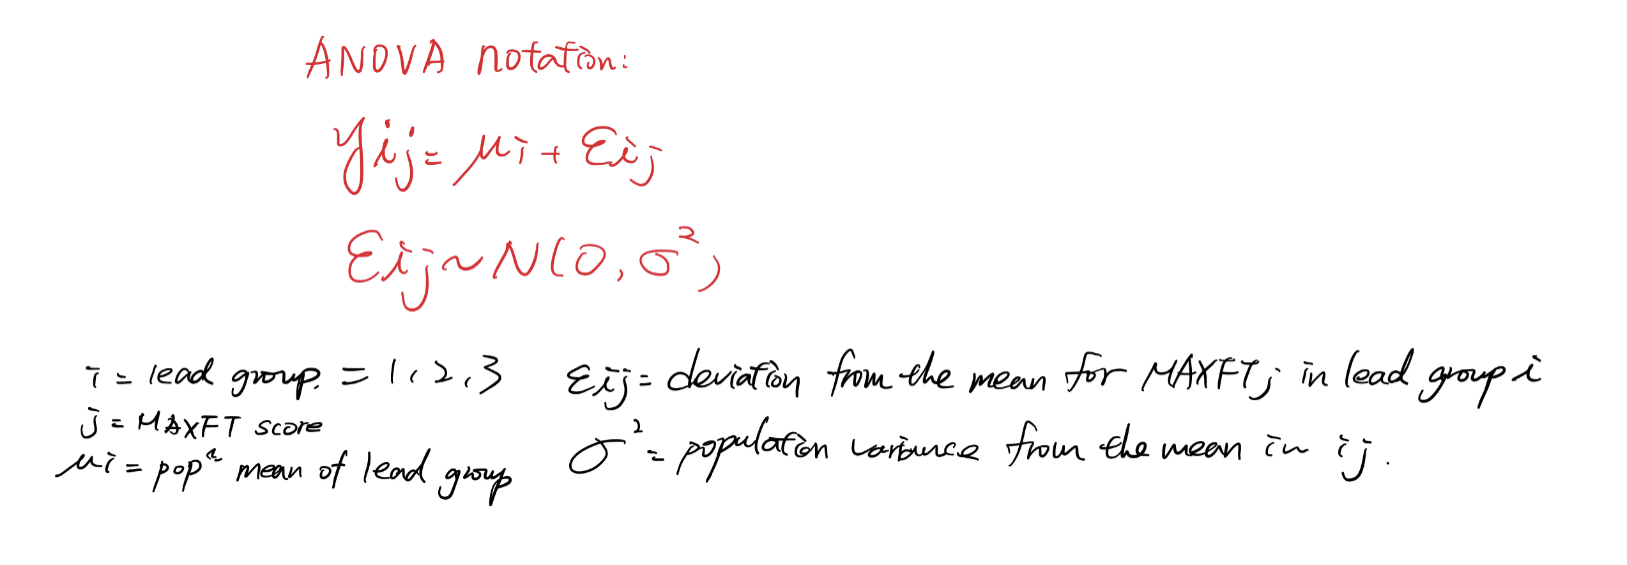 ANOVA notation:
yij = μi + εij
εij ~ N(0, σ²)
i = lead group. = 1, 2, 3
j = MAXFT score
μi = popⁿ mean of lead group
εij = deviation from the mean for MAXFT j in lead group i
σ² = population variance from the mean in ij.